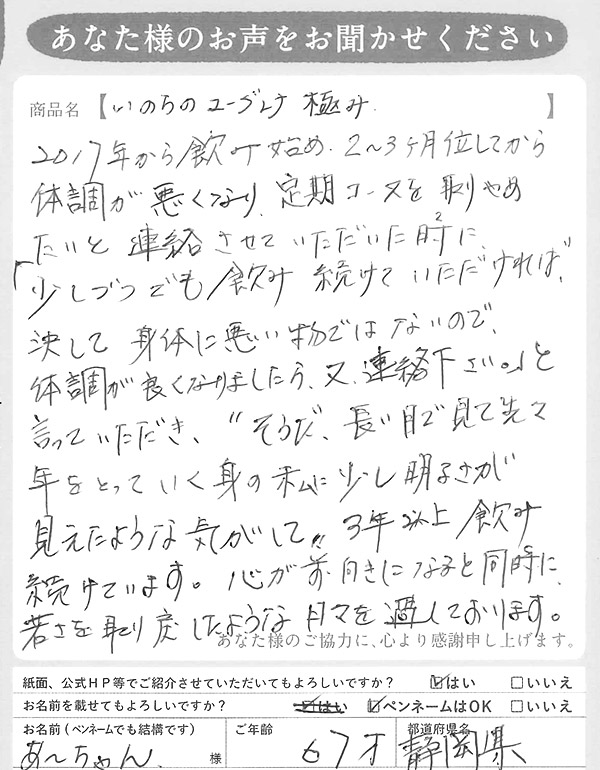 あなた様のお声をお聞かせください
商品名【いのちのユーグレナ 極み 】
2017年から飲み始め、2〜3ヶ月位してから
体調が悪くなり、定期コースを取りやめ
たいと連絡させていただいた時に、
「少しづつでも飲み続けていただければ、
決して身体に悪い物ではないので、
体調が良くなりましたら、又、連絡下さい。」と
言っていただき、"そうだ、長い目で見て先々
年をとっていく身の私に少し明るさが
見えたような気がして" 3年以上飲み
続けています。心が前向きになると同時に、
若さを取り戻したような日々を過しております。
あなた様のご協力に、心より感謝申し上げます。
紙面、公式HP等でご紹介させていただいてもよろしいですか? ☑はい □いいえ
お名前を載せてもよろしいですか? ☑はい ☑ペンネームはOK □いいえ
お名前(ペンネームでも結構です) ご年齢 都道府県名
あ〜ちゃん 様 67才 静岡県